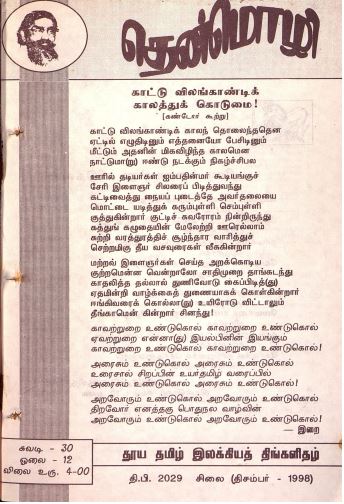 தென்மொழி
காட்டு விலங்காண்டிக்
காலத்துக் கொடுமை!
[கண்டோர் கூற்று]
காட்டு விலங்காண்டிக் காலந் தொலைந்ததென
ஏட்டில் எழுதிடினும் எத்தனையோ பேசிடினும்
மீட்டும் அதனின் மிகவிழிந்த காலமென
நாட்டுமா(று) ஈண்டு நடக்கும் நிகழ்ச்சிபல
ஊரில் தடியர்கள் ஐம்பதின்மர் கூடியங்குச்
சேரி இளைஞர் சிலரைப் பிடித்துவந்து
கட்டிவைத்து நையப் புடைத்தே அவர்தலையை
மொட்டை யடித்துக் கரும்புள்ளி செம்புள்ளி
குத்துகின்றார் குட்டிச் சுவரோரம் நின்றிருந்து
கத்துங் கழுதையின் மேலேற்றி ஊரெல்லாம்
சுற்றி வரத்தூத்திச் சூழ்ந்தார வாரித்துச்
செற்றமிகு தீய வசவுரைகள் வீசுகின்றார்
மற்றவ் இளைஞர்கள் செய்த அறக்கொடிய
குற்றமென்ன வென்றாலோ சாதிமுறை தாங்கடந்து
காதலித்த தல்லால் துணிவோடு கைப்பிடித்(து)
ஏதமின்றி வாழ்க்கைத் துணையாகக் கொள்கின்றார்
ஈங்கிவரைக் கொல்லா(து) உயிரோடு விட்டாலும்
தீங்காமென் கின்றார் சினந்து!
காவற்றுறை உண்டுகொல் காவற்றுறை உண்டுகொல்
ஏவற்றுறை என்னா(து) இயல்பினின் இயங்கும
காவற்றுறை உண்டுகொல் காவற்றுறை உண்டுகொல்!
அரைசும் உண்டுகொல் அரைசும் உண்டுகொல்
உரைசால் சிறப்பின் உயர்தமிழ் வரைப்பில்
அரைசும் உண்டுகொல் அரைசும் உண்டுகொல்!
அறவோரும் உண்டுகொல் அறவோரும் உண்டுகொல்
திறவோர் எனத்தகு பொதுநல வாழ்வின்
அறவோரும் உண்டுகொல் அறவோரும் உண்டுகொல்!
— இறை
சுவடி - 30
ஓலை - 12
விலை உரு. 4-00
தூய தமிழ் இலக்கியத் திங்களிதழ்
தி.பி. 2029 சிலை (திசம்பர் - 1998)